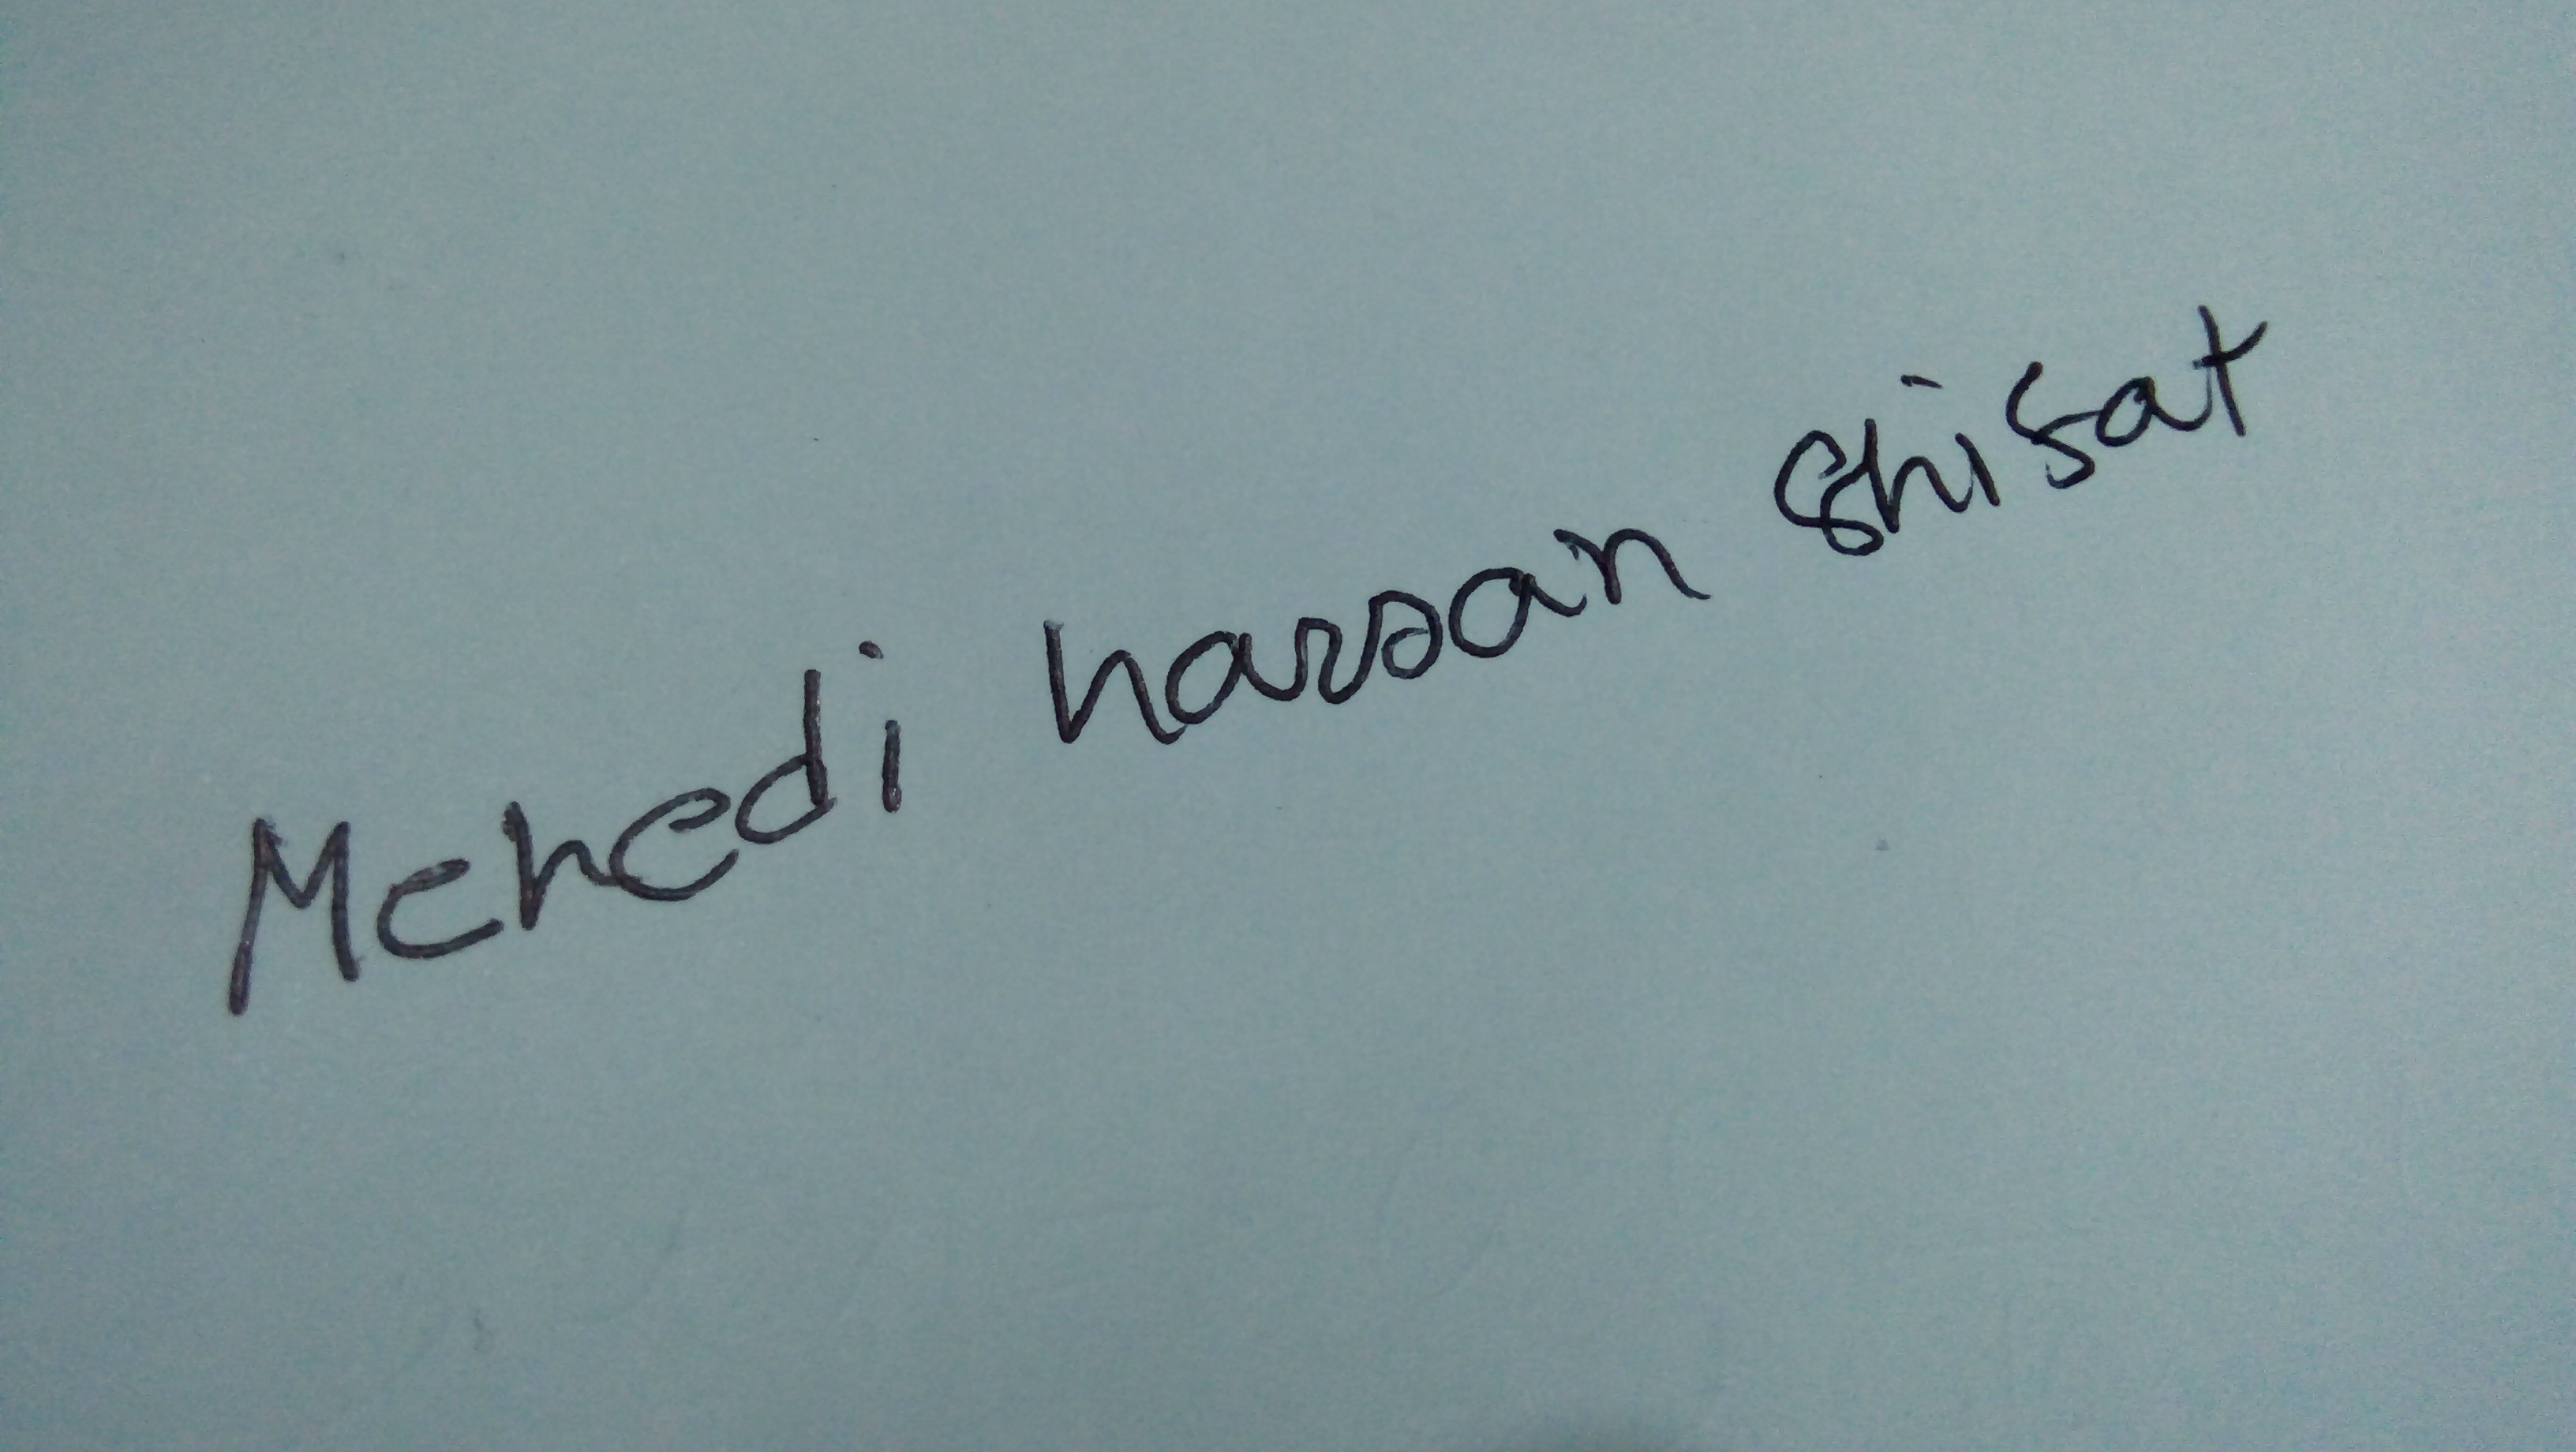 Mehedi hassan shisat